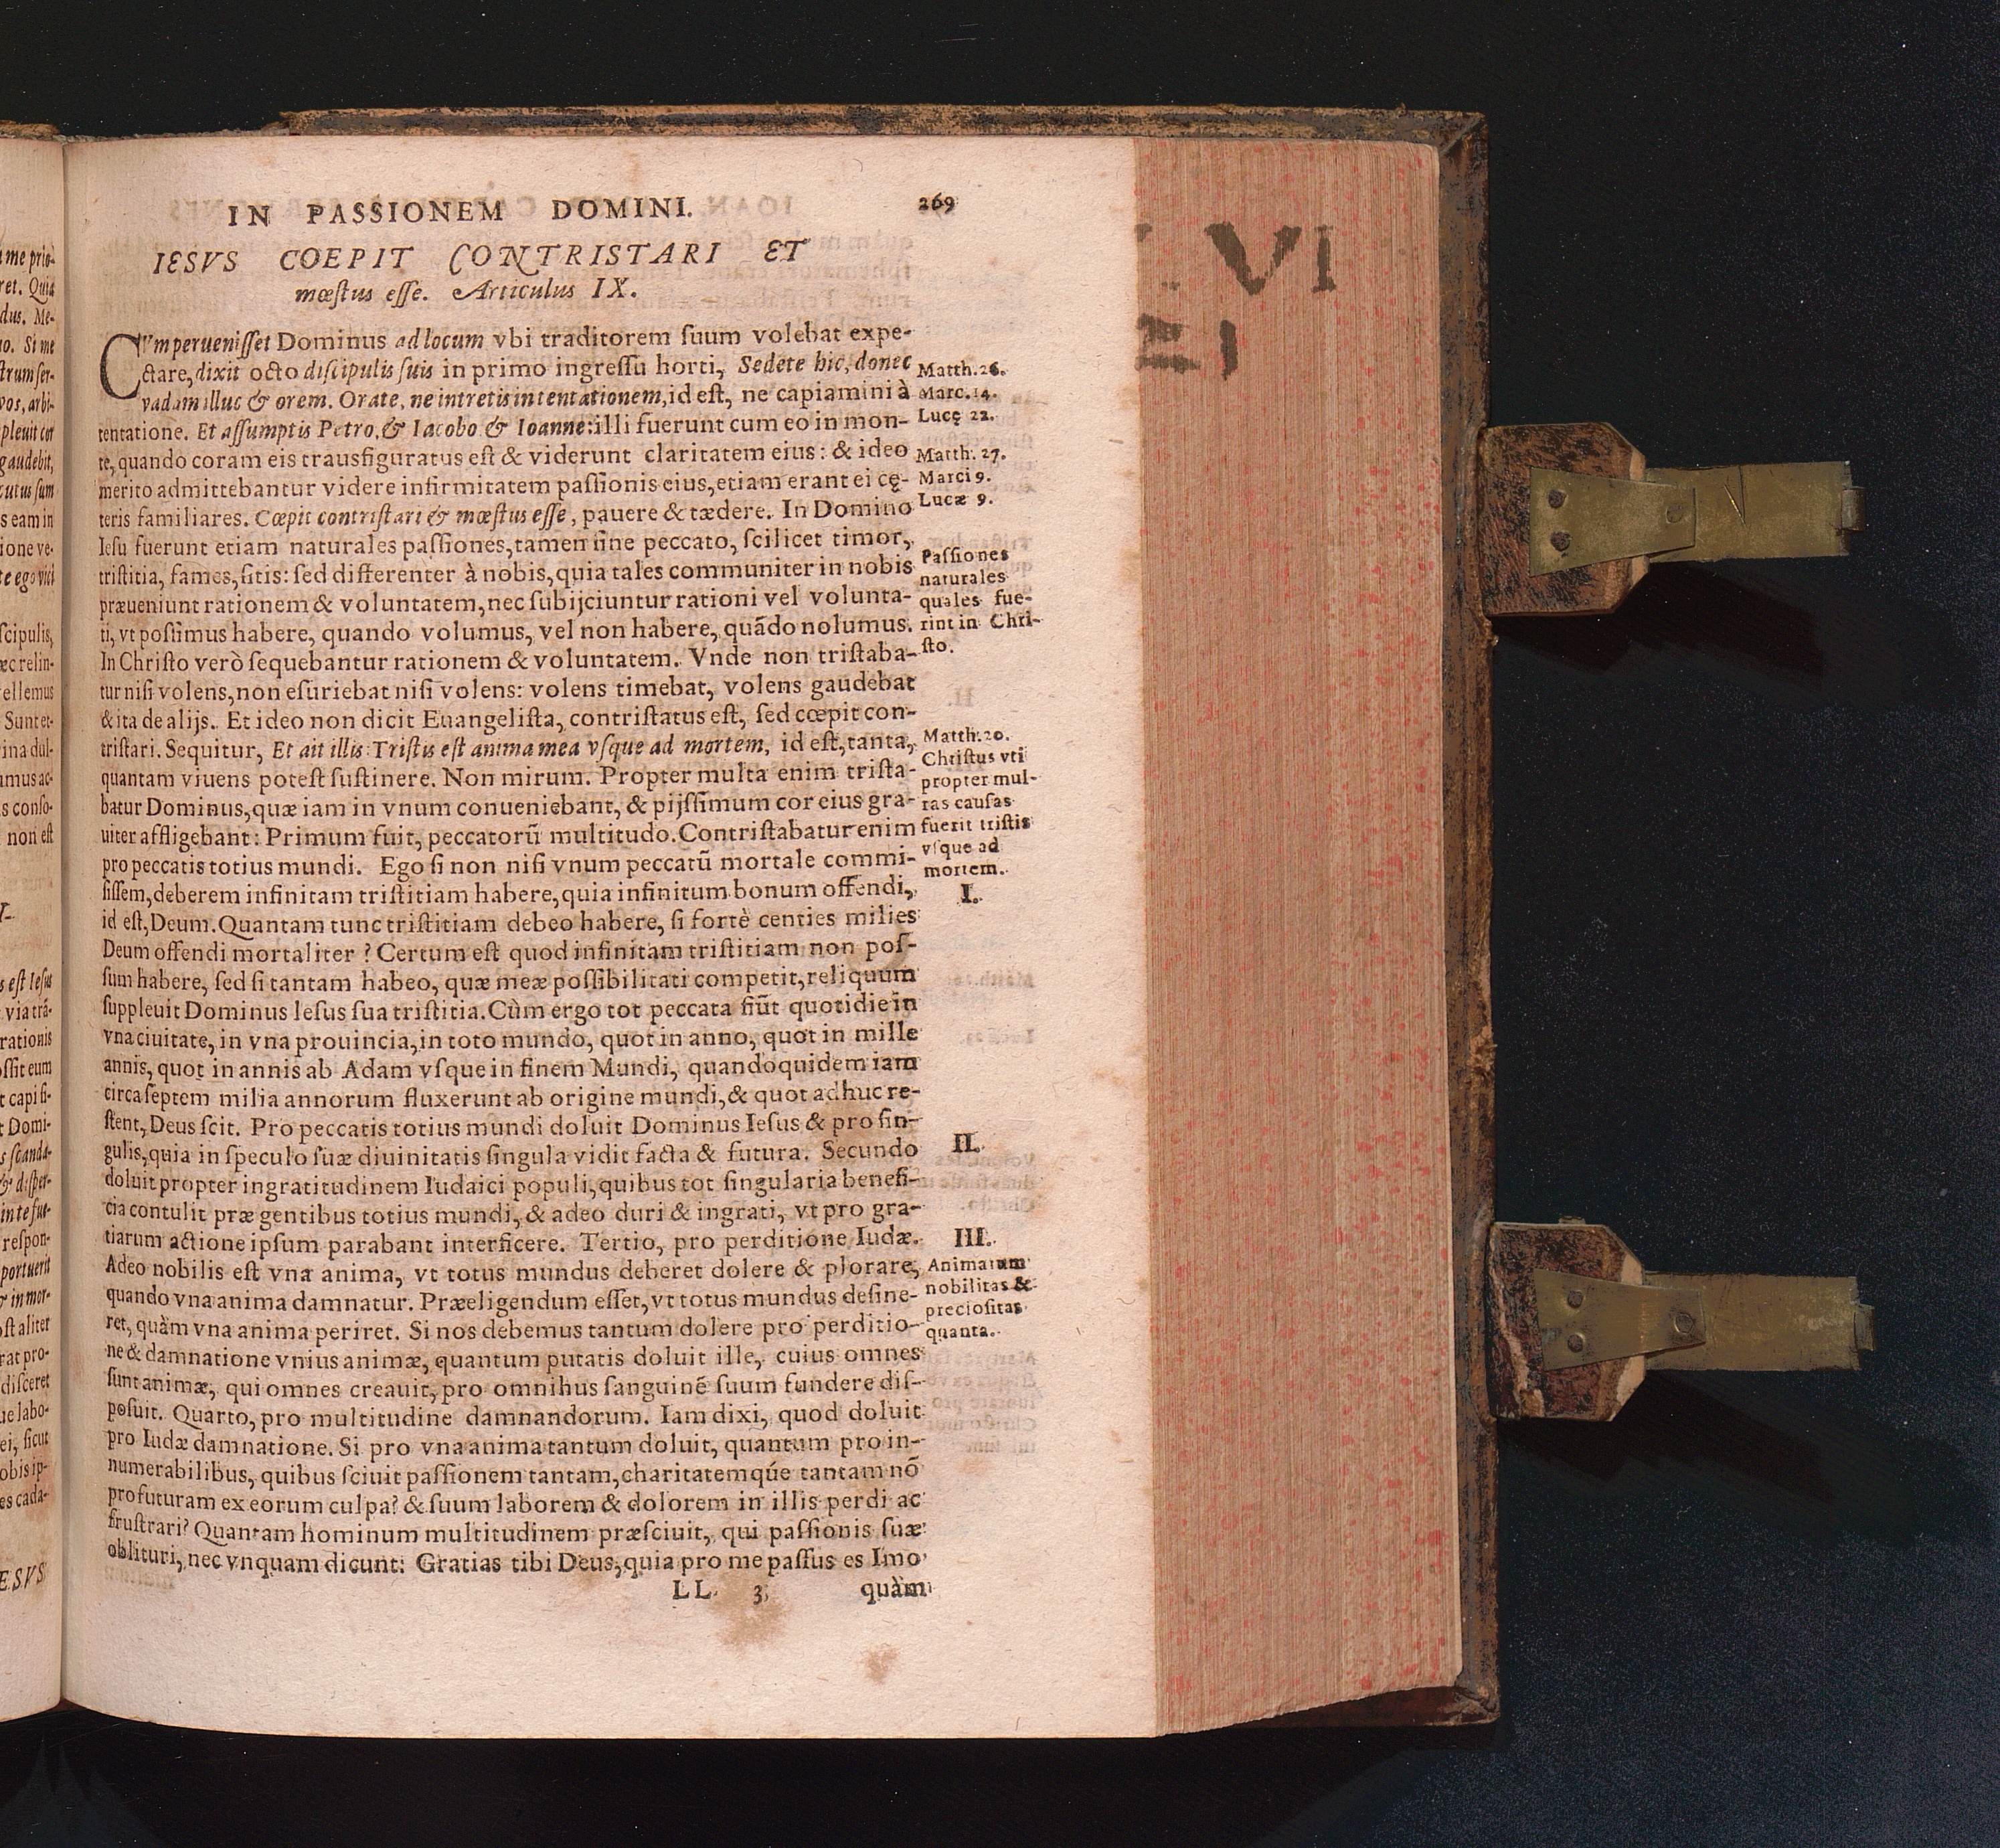 IN PASSIONEM DOMINI. 269
IESVS COEPIT CONTRISTARI ET
mœstus esse. Articulus IX.
CVm peruenisset Dominus ad locum vbi traditorem suum volebat expe-
ctare, dixit octo discipulis suis in primo ingressu horti, Sedete hic, donec
vadam illuc & orem. Orate, ne intretis in tentationem, id est, ne capiamini à
tentatione. Et assumptis Petro, & Iacobo & Ioanne: illi fuerunt cum eo in mon-
te, quando coram eis trausfiguratus est & viderunt claritatem eius: & ideo
merito admittebantur videre infirmitatem passionis eius, etiam erant ei cę-
teris familiares. Cœpit contristari & mœstus esse, pauere & tædere. In Domino
Iesu fuerunt etiam naturales passiones, tamen sine peccato, scilicet timor,
tristitia, fames, sitis: sed differenter à nobis, quia tales communiter in nobis
præueniunt rationem & voluntatem, nec subijciuntur rationi vel volunta-
ti, vt possimus habere, quando volumus, vel non habere, quãdo nolumus.
In Christo verò sequebantur rationem & voluntatem. Vnde non tristaba-
tur nisi volens, non esuriebat nisi volens: volens timebat, volens gaudebat
& ita de alijs. Et ideo non dicit Euangelista, contristatus est, sed cœpit con-
tristari. Sequitur, Et ait illis: Tristis est anima mea vsque ad mortem, id est, tanta,
quantam viuens potest sustinere. Non mirum. Propter multa enim trista-
batur Dominus, quæ iam in vnum conueniebant, & pijssimum cor eius gra-
uiter affligebant: Primum fuit, peccatorũ multitudo. Contristabatur enim
pro peccatis totius mundi. Ego si non nisi vnum peccatũ mortale commi-
sissem, deberem infinitam tristitiam habere, quia infinitum bonum offendi,
id est, Deum. Quantam tunc tristitiam debeo habere, si fortè centies milies
Deum offendi mortaliter? Certum est quod infinitam tristitiam non pos-
sum habere, sed si tantam habeo, quæ meæ possibilitati competit, reliquum
suppleuit Dominus Iesus sua tristitia. Cùm ergo tot peccata fiũt quotidie in
vna ciuitate, in vna prouincia, in toto mundo, quot in anno, quot in mille
annis, quot in annis ab Adam vsque in finem Mundi, quandoquidem iam
circa septem milia annorum fluxerunt ab origine mundi, & quot adhuc re-
stent, Deus scit. Pro peccatis totius mundi doluit Dominus Iesus & pro sin-
gulis, quia in speculo suæ diuinitatis singula vidit facta & futura. Secundo
doluit propter ingratitudinem Iudaici populi, quibus tot singularia benefi-
cia contulit præ gentibus totius mundi, & adeo duri & ingrati, vt pro gra-
tiarum actione ipsum parabant interficere. Tertio, pro perditione Iudæ.
Adeo nobilis est vna anima, vt totus mundus deberet dolere & plorare,
quando vna anima damnatur. Præeligendum esset, vt totus mundus desine-
ret, quàm vna anima periret. Si nos debemus tantum dolere pro perditio-
ne & damnatione vnius animæ, quantum putatis doluit ille, cuius omnes
sunt animæ, qui omnes creauit, pro omnibus sanguinẽ suum fundere dis-
posuit. Quarto, pro multitudine damnandorum. Iam dixi, quod doluit
pro Iudæ damnatione. Si pro vna anima tantum doluit, quantum pro in-
numerabilibus, quibus sciuit passionem tantam, charitatemqúe tantam nõ
profuturam ex eorum culpa? & suum laborem & dolorem in illis perdi ac
frustrari? Quantam hominum multitudinem præsciuit, qui passionis suæ
oblituri, nec vnquam dicunt: Gratias tibi Deus, quia pro me passus es Imo
LL 3 quàm
Matth. 26.
Marc. 14.
Lucę 22.
Matth. 27.
Marci 9.
Lucæ 9.
Passiones
naturales
quales fue-
rint in Chri-
sto.
Matth. 20.
Christus vti
propter mul-
tas causas
fuerit tristis
vsque ad
mortem.
I.
II.
III.
Animarum
nobilitas &
preciositas
quanta.
VI
me prio-
ret. Quia
dus. Me-
no. Si me
strum ser-
vos, arbi-
pleuit cor
gaudebit,
cutus sum
s eam in
ione ve-
te ego vici
scipulis,
ec relin-
ellemus
Sunt et-
ina dul-
mus ac-
s conso-
non est
s est Iesus
via trã-
rationis
ossit eum
t capi si-
t Domi-
s scanda-
& disper-
in te fue-
respon-
portuerit
& in mor-
ost aliter
rat pro-
disceret
ue labo-
ei, sicut
obis ip-
es cada-
ESVS